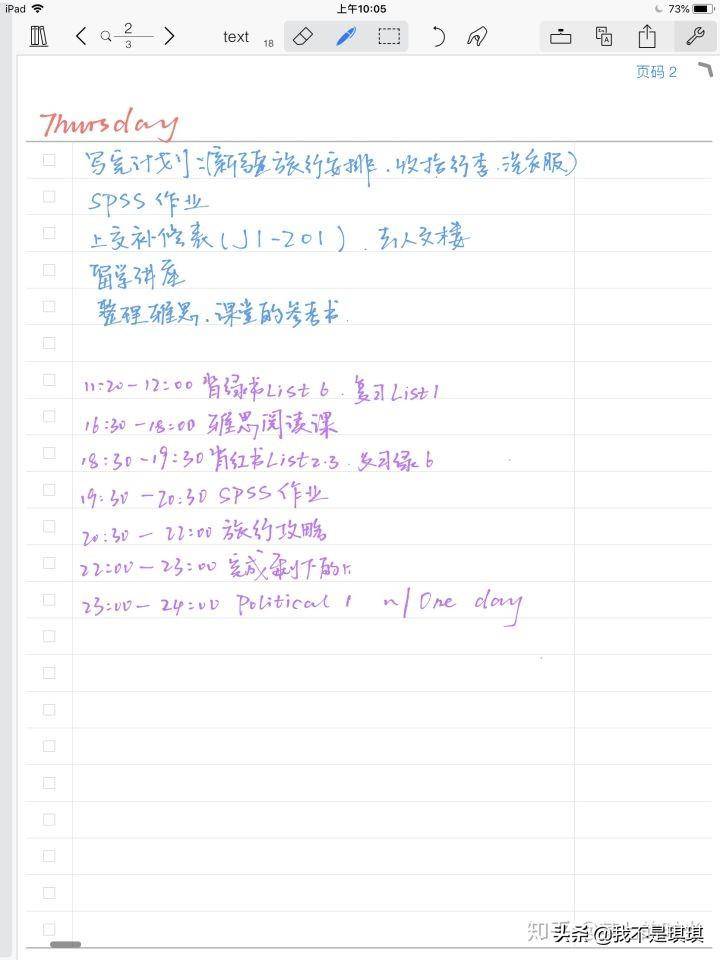 iPad 上午10:05 73%
2
3
text 18
页码 2
Thursday
写完计划:(新疆旅行安排、收拾行李、洗衣服)
SPSS 作业
上交补修表(J1-201)、去人文楼
留学讲座
整理雅思、课堂的参考书.
11:20-12:00 背绿书List 6、复习List1
16:30-18:00 雅思阅读课
18:30-19:30 背红书List2.3、复习绿6
19:30-20:30 SPSS 作业
20:30-22:00 旅行攻略
22:00-23:00 完成剩下的
23:00-24:00 Political 1 n/One day
知乎
头条 @我不是琪琪